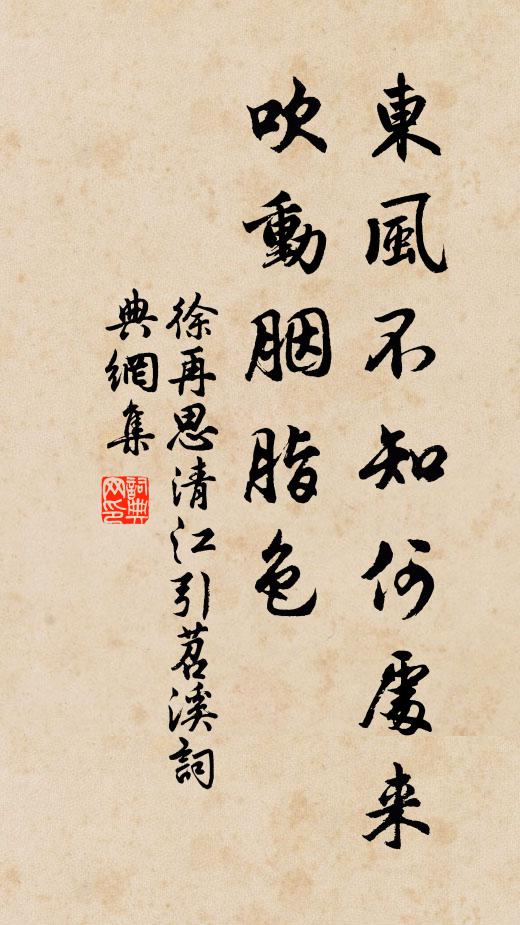 東風不知何處来
吹動胭脂色
徐再思清江引苕溪詞
典網集
詞典
网印